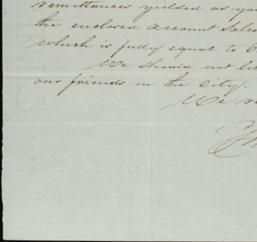 remittances yielded as you
the enclosed account Sales
which is fully equal to
We should not
our friends in the City.
We